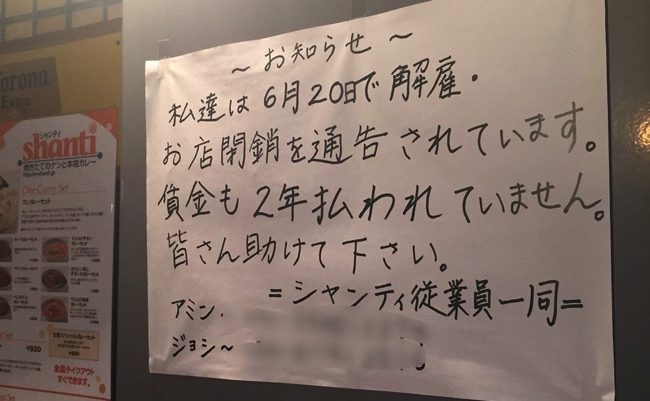 ～お知らせ～
私達は6月20日で解雇.
お店閉鎖を通告されています。
賃金も2年払われていません。
皆さん助けて下さい。
=シャンティ従業員一同=
アミン.
ジョシ～
Corona
Extra
シャンティ
shanti
焼きたてのナンと本格カレー
One Curry Set
ワンカレーセット
¥920
全品テイクアウト
すぐできます。